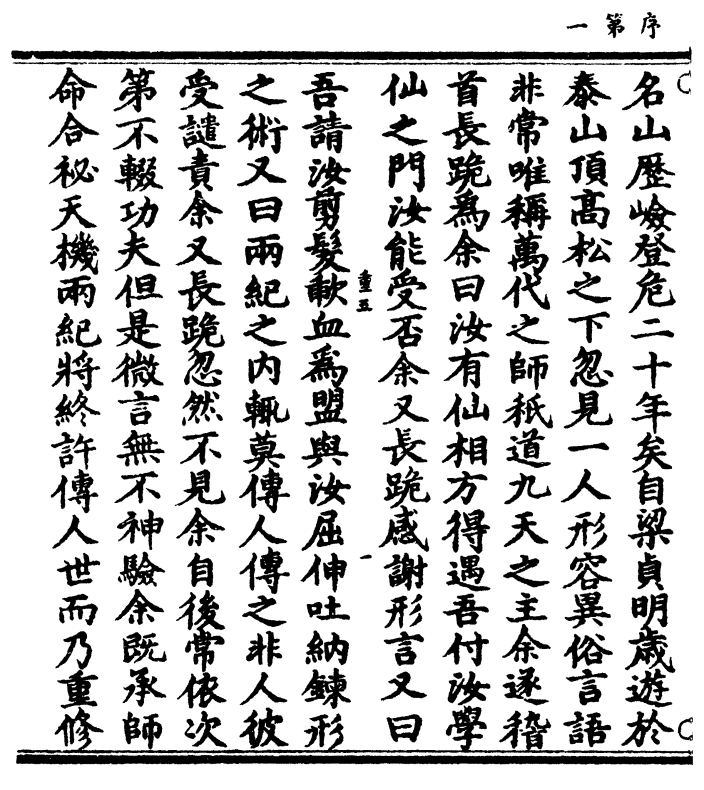 序第一
名山歷嶮登危二十年矣自梁貞明歲遊於
泰山頂高松之下忽見一人形容異俗言語
非常唯稱萬代之師秖道九天之主余遂稽
首長跪爲余曰汝有仙相方得遇吾付汝學
仙之門汝能受否余又長跪感謝形言又曰
重五
一
吾請汝剪髮歃血爲盟與汝屈伸吐納鍊形
之術又曰兩紀之内輙莫傳人傳之非人彼
受譴責余又長跪忽然不見余自後常依次
第不輟功夫但是微言無不神驗余既承師
命合祕天機兩紀將終許傳人世而乃重修